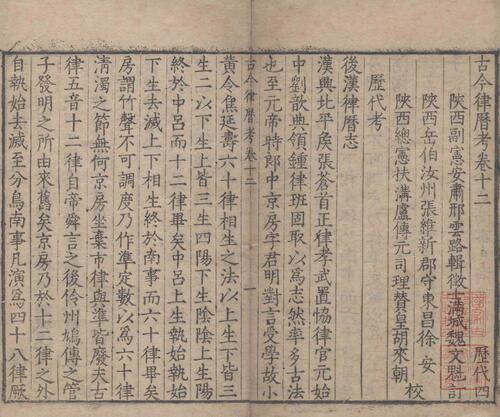 古今律曆考卷十二　　歷代四
陝西副憲安肅邢雲路輯徵　滿城魏文魁訂
陝西岳伯汝州張維新　郡守東昌徐安
陝西總憲扶溝盧傳元　司理贊皇胡來朝　校
歷代考
後漢律曆志
漢興北平矦張蒼首正律孝武置恊律官元始
中劉歆典領鍾律班固取以爲志然率多古法
也至元帝時郎中京房字君明對言受學故小
古今律曆考卷十二
黃令焦延壽六十律相生之法以上生下皆三
生二以下生上皆三生四陽下生陰陰上生陽
終於中呂而十二律畢矣中呂上生執始執始
下生去滅上下相生終於南事而六十律畢矣
房謂竹聲不可調度乃作準定數以爲六十律
清濁之節無何京房坐棄市律與準皆廢夫古
律五音十二律自帝舜言之後伶州鳩傳之管
子發明之所由來舊矣京房乃於十二律之外
自執始去滅至分烏南事凡演爲四十八律厥